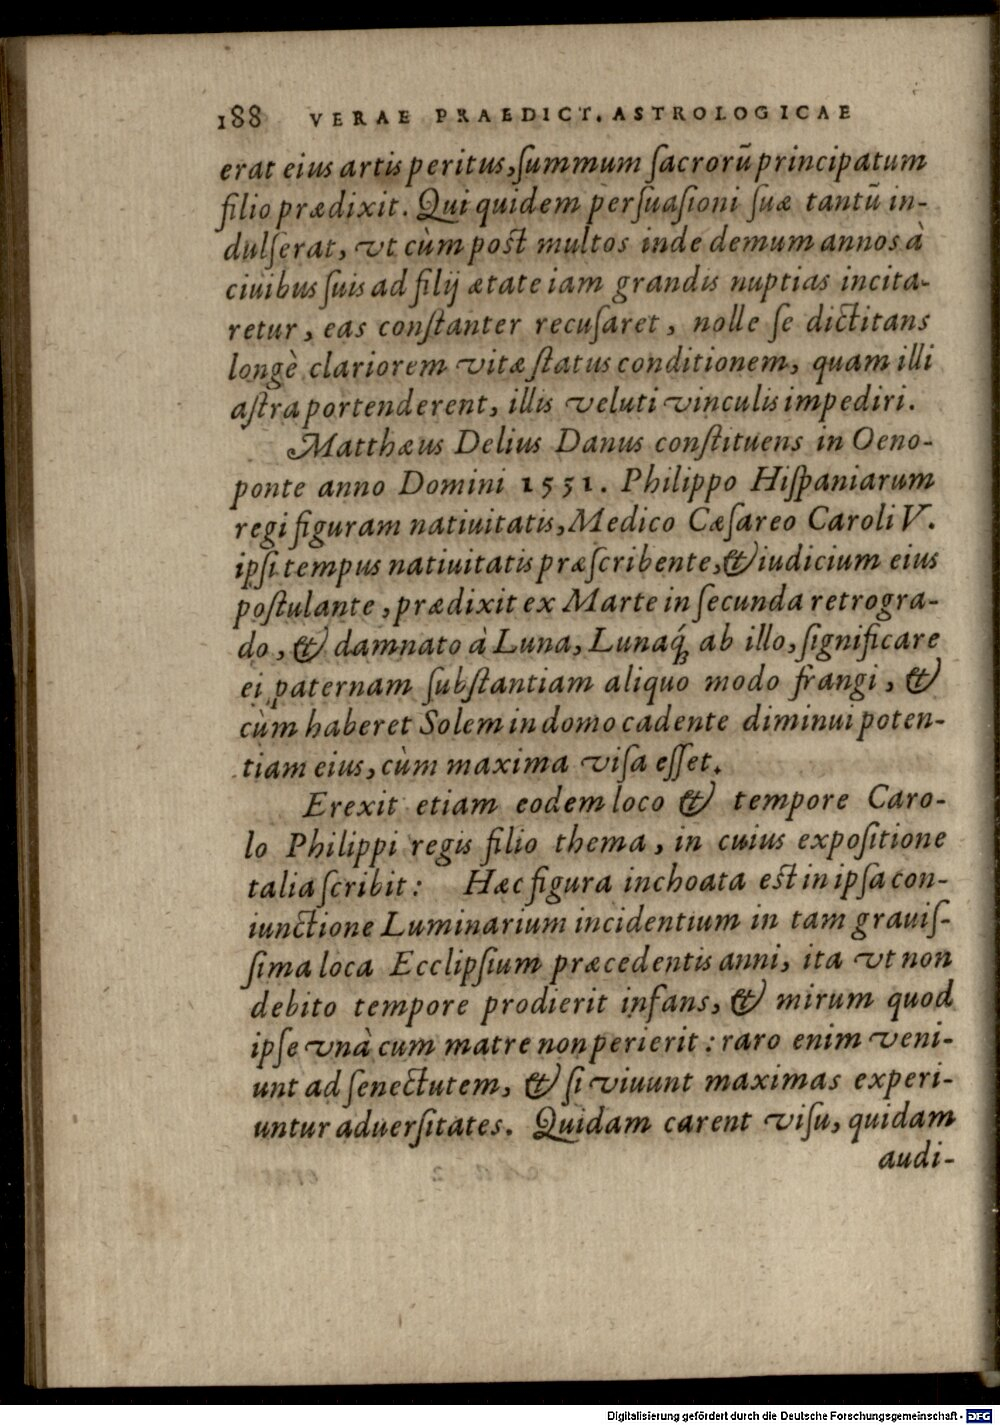 188 VERAE PRAEDICT. ASTROLOGICAE
erat eius artis peritus, ſummum ſacrorũ principatum
filio prædixit. Qui quidem perſuaſioni ſuæ tantũ in-
dulſerat, vt cùm poſt multos inde demum annos à
ciuibus ſuis ad filij ætate iam grandis nuptias incita-
retur, eas conſtanter recuſaret, nolle ſe dictitans
longè clariorem vitæ ſtatus conditionem, quam illi
aſtra portenderent, illis veluti vinculis impediri.
Matthæus Delius Danus conſtituens in Oeno-
ponte anno Domini 1551. Philippo Hiſpaniarum
regi figuram natiuitatis, Medico Cæſareo Caroli V.
ipſi tempus natiuitatis præſcribente, & iudicium eius
poſtulante, prædixit ex Marte in ſecunda retrogra-
do, & damnato à Luna, Lunaq́; ab illo, ſignificare
ei paternam ſubſtantiam aliquo modo frangi, &
cùm haberet Solem in domo cadente diminui poten-
tiam eius, cùm maxima viſa eſſet.
Erexit etiam eodem loco & tempore Caro-
lo Philippi regis filio thema, in cuius expoſitione
talia ſcribit: Hæc figura inchoata eſt in ipſa con-
iunctione Luminarium incidentium in tam grauiſ-
ſima loca Ecclipſium præcedentis anni, ita vt non
debito tempore prodierit infans, & mirum quod
ipſe vnà cum matre non perierit: raro enim veni-
unt ad ſenectutem, & ſi viuunt maximas experi-
untur aduerſitates. Quidam carent viſu, quidam
audi-
Digitalisierung gefördert durch die Deutsche Forschungsgemeinschaft - DFG